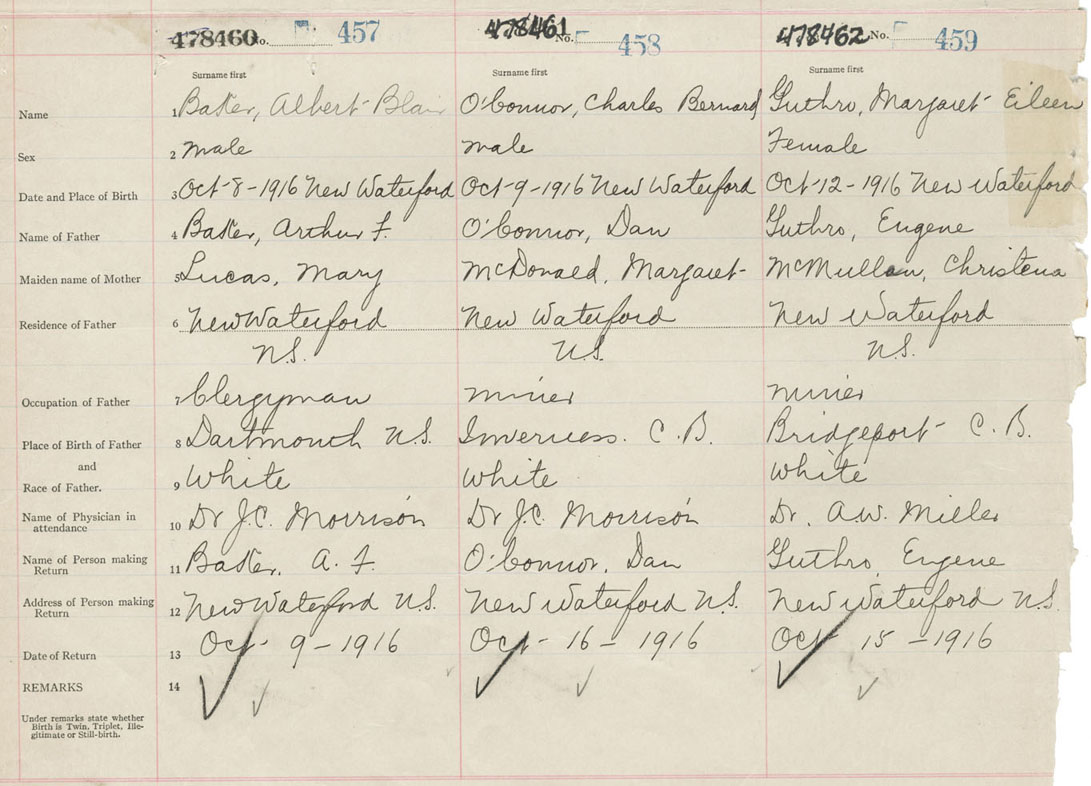 478460 No. 457 478461 No. 458 478462 No. 459
Surname first Surname first Surname first
Name 1 Baker, Albert Blair O'Connor, Charles Bernard Guthro, Margaret Eileen
Sex 2 male male Female
Date and Place of Birth 3 Oct-8-1916 New Waterford Oct-9-1916 New Waterford Oct-12-1916 New Waterford
Name of Father 4 Baker, Arthur F. O'Connor, Dan Guthro, Eugene
Maiden name of Mother 5 Lucas, Mary McDonald, Margaret McMullan, Christena
Residence of Father 6 New Waterford New Waterford New Waterford
N.S. N.S. N.S.
Occupation of Father 7 Clergyman miner miner
Place of Birth of Father 8 Dartmouth N.S. Inverness. C.B. Bridgeport C.B.
and
Race of Father. 9 White White White
Name of Physician in attendance 10 Dr J.C. Morrison Dr J.C. Morrison Dr. A.W. Miller
Name of Person making Return 11 Baker, A. F. O'Connor, Dan Guthro Eugene
Address of Person making Return 12 New Waterford N.S. New Waterford N.S. New Waterford N.S.
Date of Return 13 Oct 9-1916 Oct-16-1916 Oct 15-1916
REMARKS 14
Under remarks state whether
Birth is Twin, Triplet, Ille-
gitimate or Still-birth.